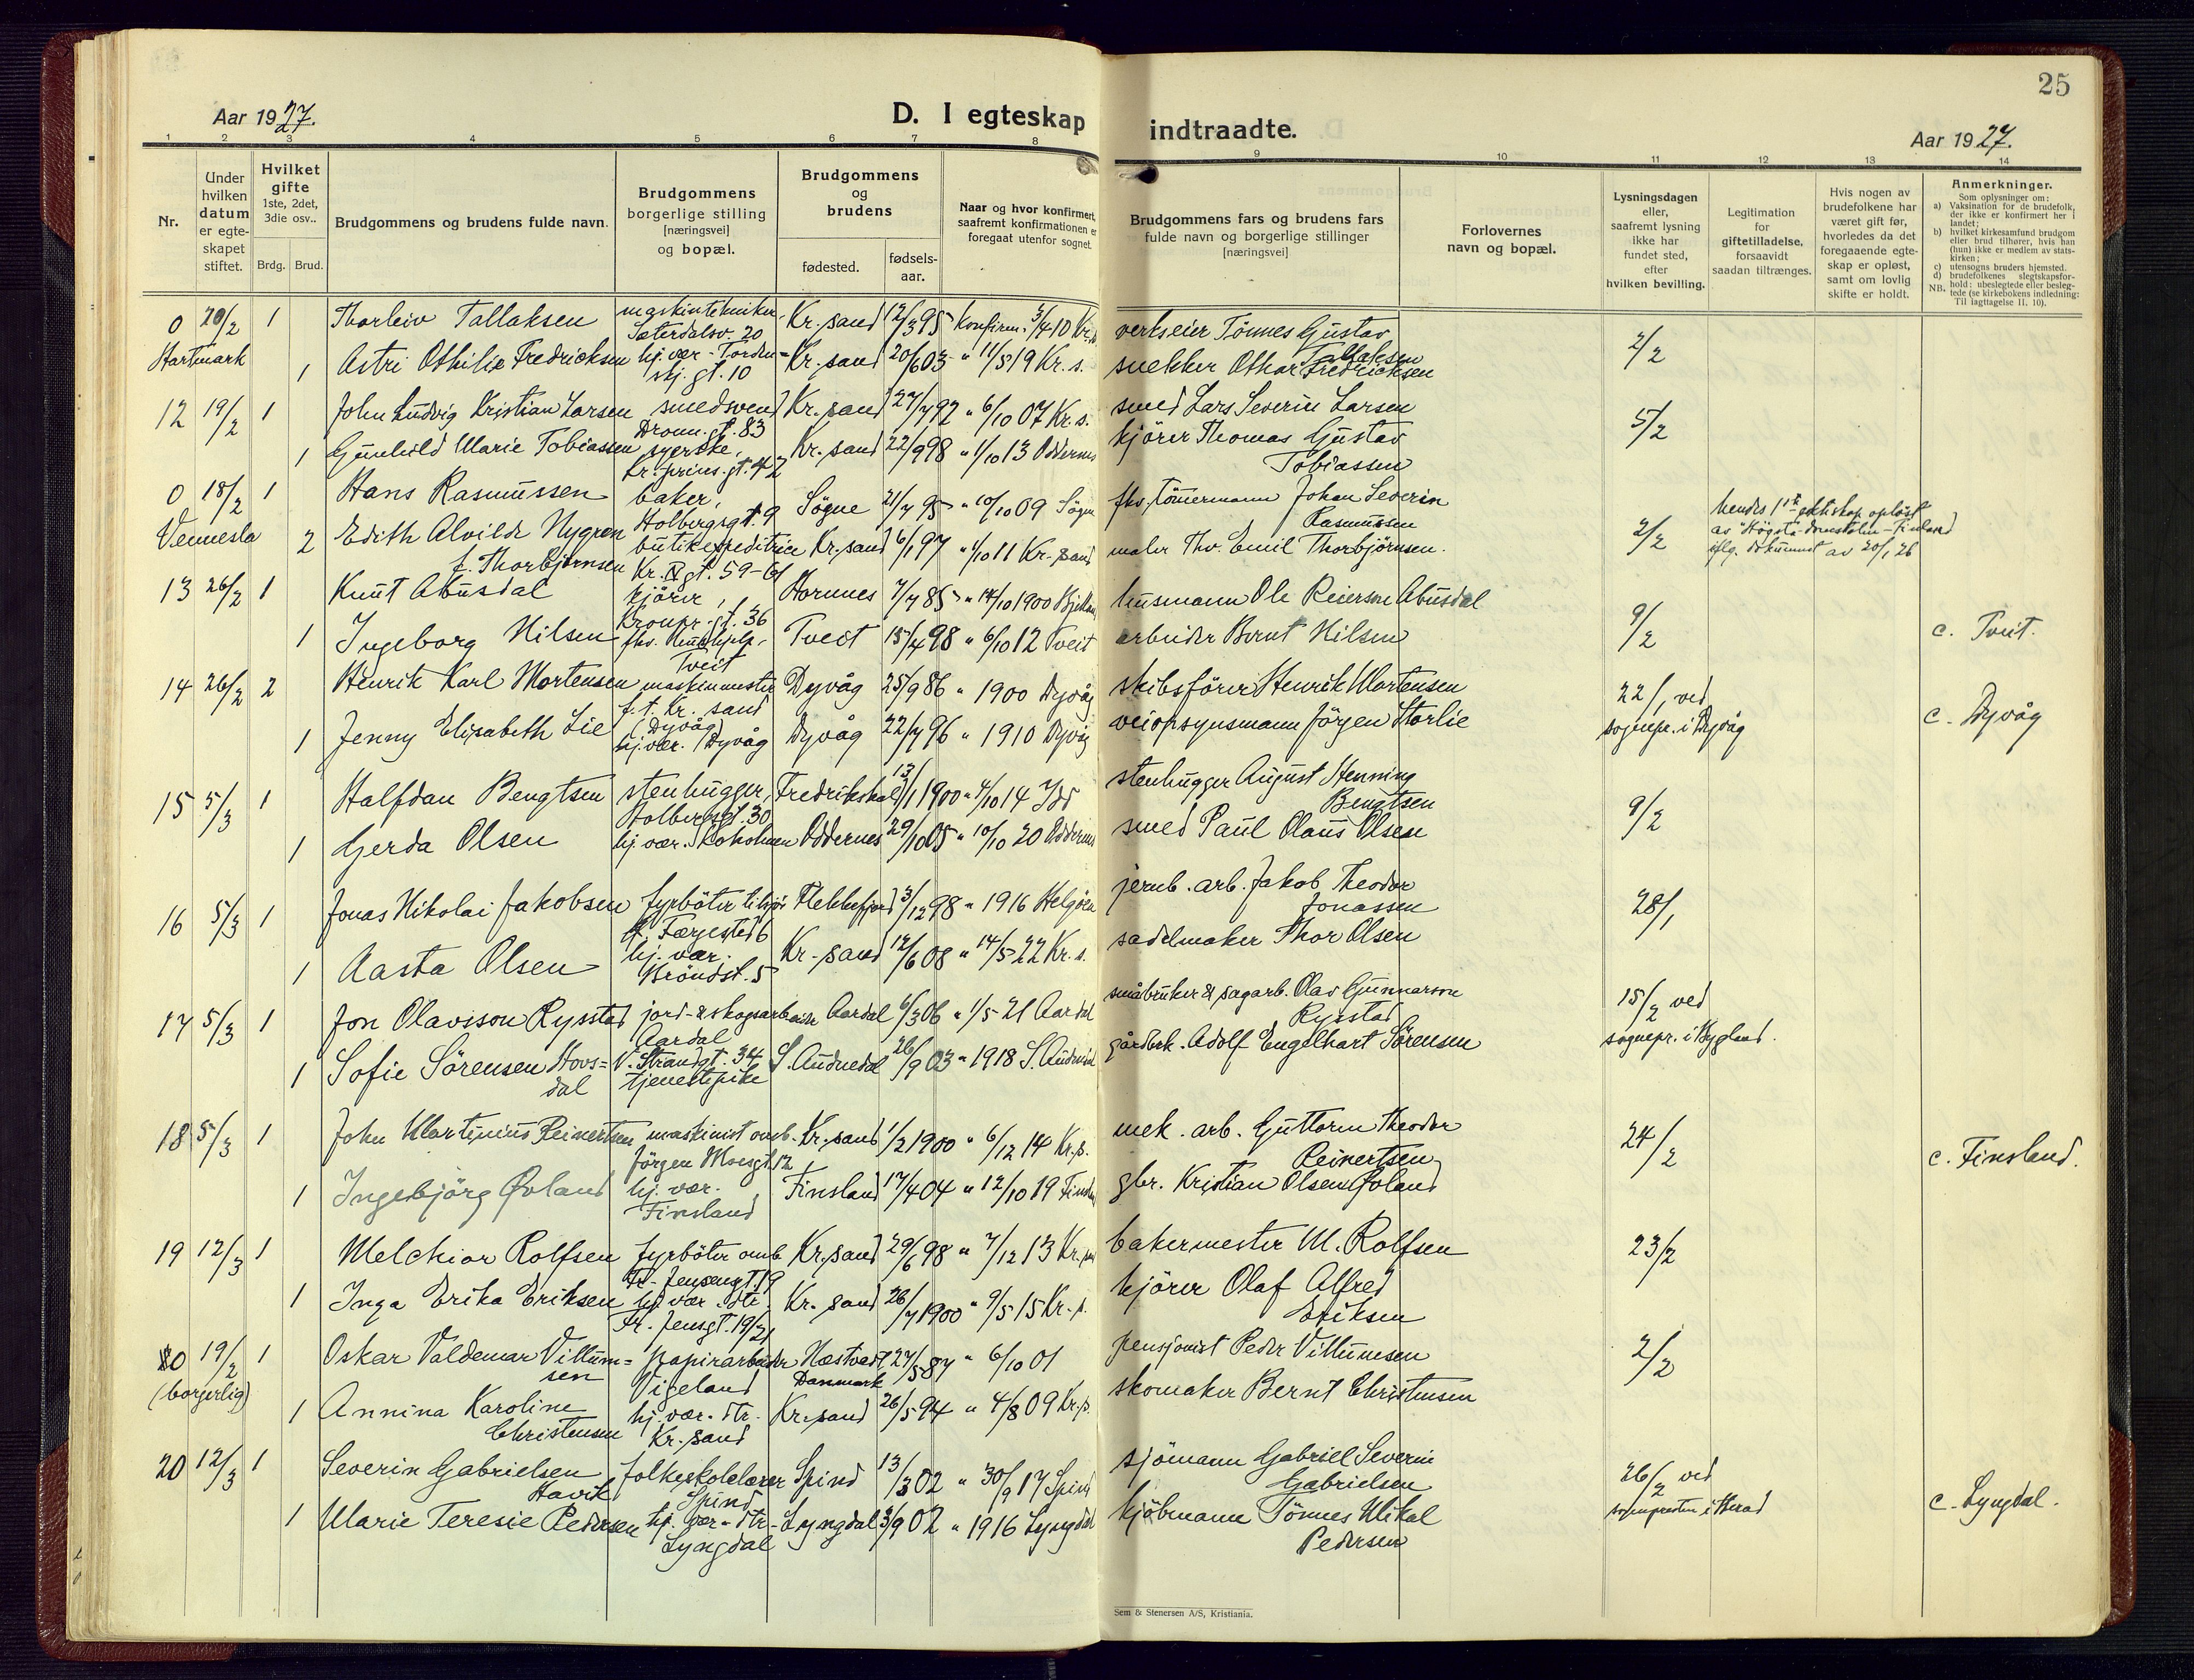 25
Aar 1927.
D. I egteskap indtraadte.
Aar 1927.
1 2 3 4 5 6 7 8 9 10 11 12 13 14
Nr.
Under hvilken datum er egte-skapet stiftet.
Hvilket gifte 1ste, 2det, 3die osv..
Brdg. Brud.
Brudgommens og brudens fulde navn.
Brudgommens borgerlige stilling [næringsvei] og bopæl.
Brudgommens og brudens
fødested.
fødsels-aar.
Naar og hvor konfirmert, saafremt konfirmationen er foregaat utenfor sognet.
Brudgommens fars og brudens fars fulde navn og borgerlige stillinger [næringsvei]
Forlovernes navn og bopæl.
Lysningsdagen eller, saafremt lysning ikke har fundet sted, efter hvilken bevilling.
Legitimation for giftetilladelse, forsaavidt saadan tiltrænges.
Hvis nogen av brudefolkene har været gift før, hvorledes da det foregaaende egte-skap er opløst, samt om lovlig skifte er holdt.
Anmerkninger.
Som oplysninger om:
a) Vaksination for de brudefolk, der ikke er konfirmert her i landet;
b) hvilket kirkesamfund brudgom eller brud tilhører, hvis han (hun) ikke er medlem av stats-kirken;
c) utensogns bruders hjemsted.
d) brudefolkenes slegtskapsfor-hold: ubeslegtede eller besleg-tede (se kirkebokens indledning:
NB. Til iagttagelse II. 10).
0 20/2 1 Thorleiv Tallaksen maskintekniker, Kr.sand 12/3 95 Konfirm. 3/4 10 Kr.s. verkseier Tönnes Gustav
Setersdalsv. 20 Tallaksen 2/2
Hartmark 1 Astri Othilie Fredricksen hj.vær - Torden= Kr.sand 20/6 03 " 11/5 19 Kr. s. snekker Othar Fredricksen
skj.gt. 10
12 19/2 1 John Ludvig Kristian Larsen smedsvend Kr.sand 27/7 92 " 6/10 07 Kr. s. smed Lars Severin Larsen
Dronn.gt. 83 5/2
1 Gunhild Marie Tobiassen syerske, Kr.sand 22/9 98 " 1/10 13 Oddernes kjörer Thomas Gustav
Kr.prins.gt. 42 Tobiassen
0 18/2 1 Hans Rasmussen baker, Søgne 21/7 95 " 10/10 09 Søgne fhv. tömmermann Johan Severin
Holbergsgt. 9 Rasmussen
Vennesla 2 Edith Alvilde Nygren butikexpeditrice Kr.sand 6/1 97 " 1/10 11 Kr.sand maler Thv. Emil Thorbjörnsen. 2/2
f. Thorbjörnsen Kr. IV gt. 59-61
hendes 1ste ekteskap oplöst
av "Högsta" domstolen - Finland
iflg. dokument av 20/1 26
13 26/2 1 Knut Abusdal kjörer, Hornnes 7/7 85 " 14/10 1900 husmann Ole Reierson Abusdal
Kronpr.gt. 36 9/2
1 Ingeborg Nilsen fhv. hushjelp. Tveit 15/4 98 " 6/10 12 Tveit arbeider Bernt Nilsen c. Tveit.
Tveit
14 26/2 2 Henrik Karl Mortensen maskinmester Dyvåg 25/9 86 " 1900 Dyvåg skibsförer Henrik Mortensen 22/1 ved
f.t. Kr.sand (Dyvåg) sognepr. i Dyvåg
1 Jenny Elisabeth Lie hj.vær. Dyvåg Dyvåg 22/7 96 " 1910 Dyvåg veiopsynsmann Jörgen Storlie c. Dyvåg
15 5/3 1 Halfdan Bengtsen stenhugger, Fredrikshald 13/1 1900 " 4/10 14 Idd stenhugger August Henning
Holbergsgt. 30 Bengtsen 9/2
1 Gerda Olsen hj.vær. Skoholmen Oddernes 29/10 05 " 10/10 20 Oddernes smed Paul Olaus Olsen
16 5/3 1 Jonas Nikolai Jakobsen fyrböter tilsjös Flekkefjord 3/12 98 " 1916 Helgöen jernb. arb. Jakob Theodor
Færgested 6 Jonassen 28/1
1 Aasta Olsen hj.vær. Kr.sand 12/6 08 " 14/5 22 Kr. s. sadelmaker Thor Olsen
Bröndst. 5
17 5/3 1 Jon Olavsson Rysstad jord- & skogsarbeider Aardal 6/3 06 " 1/5 21 Aardal småbruker & sagarb. Olav Gunnarson 15/2 ved
Aardal Rysstad sognepr. i Bygland.
1 Sofie Sörensen Hovs= V. Strandgt. 34 S. Audnedal 26/9 03 " 1918 S. Audnedal gårdbrk. Adolf Engelhart Sörensen
dal tjenestepike
18 5/3 1 John Martinius Reinertsen maskinist omb. Kr.sand 1/2 1900 " 6/12 14 Kr.s. mek. arb. Guttorm Theodor
Jörgen Moesgt. 12 Reinertsen 24/2
1 Ingebjörg Øvland hj.vær. Finsland 17/4 04 " 12/10 19 Finsland gbr. Kristian Olsen Øvland c. Finsland.
Finsland
19 12/3 1 Melchior Rolfsen fyrböter omb Kr.sand 29/6 98 " 7/12 13 Kr.sand bakermester M. Rolfsen 23/2
Fr. Jensengt. 19
1 Inga Erika Eriksen hj.vær. dtr. Kr.sand 26/7 1900 " 9/5 15 Kr.s. kjörer Olaf Alfred
Fr. Jensgt. 19/21 Eriksen
0 19/2 1 Oskar Valdemar Villum= papirarbeider Næstved 27/5 87 " 6/10 01 pensjonist Peder Villumsen
sen Vigeland Danmark 2/2
(borgerlig) 1 Annina Karoline hj.vær. dtr. Kr.sand 26/5 94 " 4/8 09 Kr.s. skomaker Bernt Christensen
Christensen Kr.sand
20 12/3 1 Severin Gabrielsen folkeskolelærer Spind 13/3 02 " 30/9 17 Spind sjömann Gabriel Severin 26/2 ved
Havik Spind Gabrielsen sognepresten i Herad
1 Marie Teresie Pedersen hj.vær - dtr - Lyngdal 3/9 02 " 1916 Lyngdal kjöbmann Tönnes Mikal c. Lyngdal.
Lyngdal Pedersen
Sem & Stenersen A/S, Kristiania.